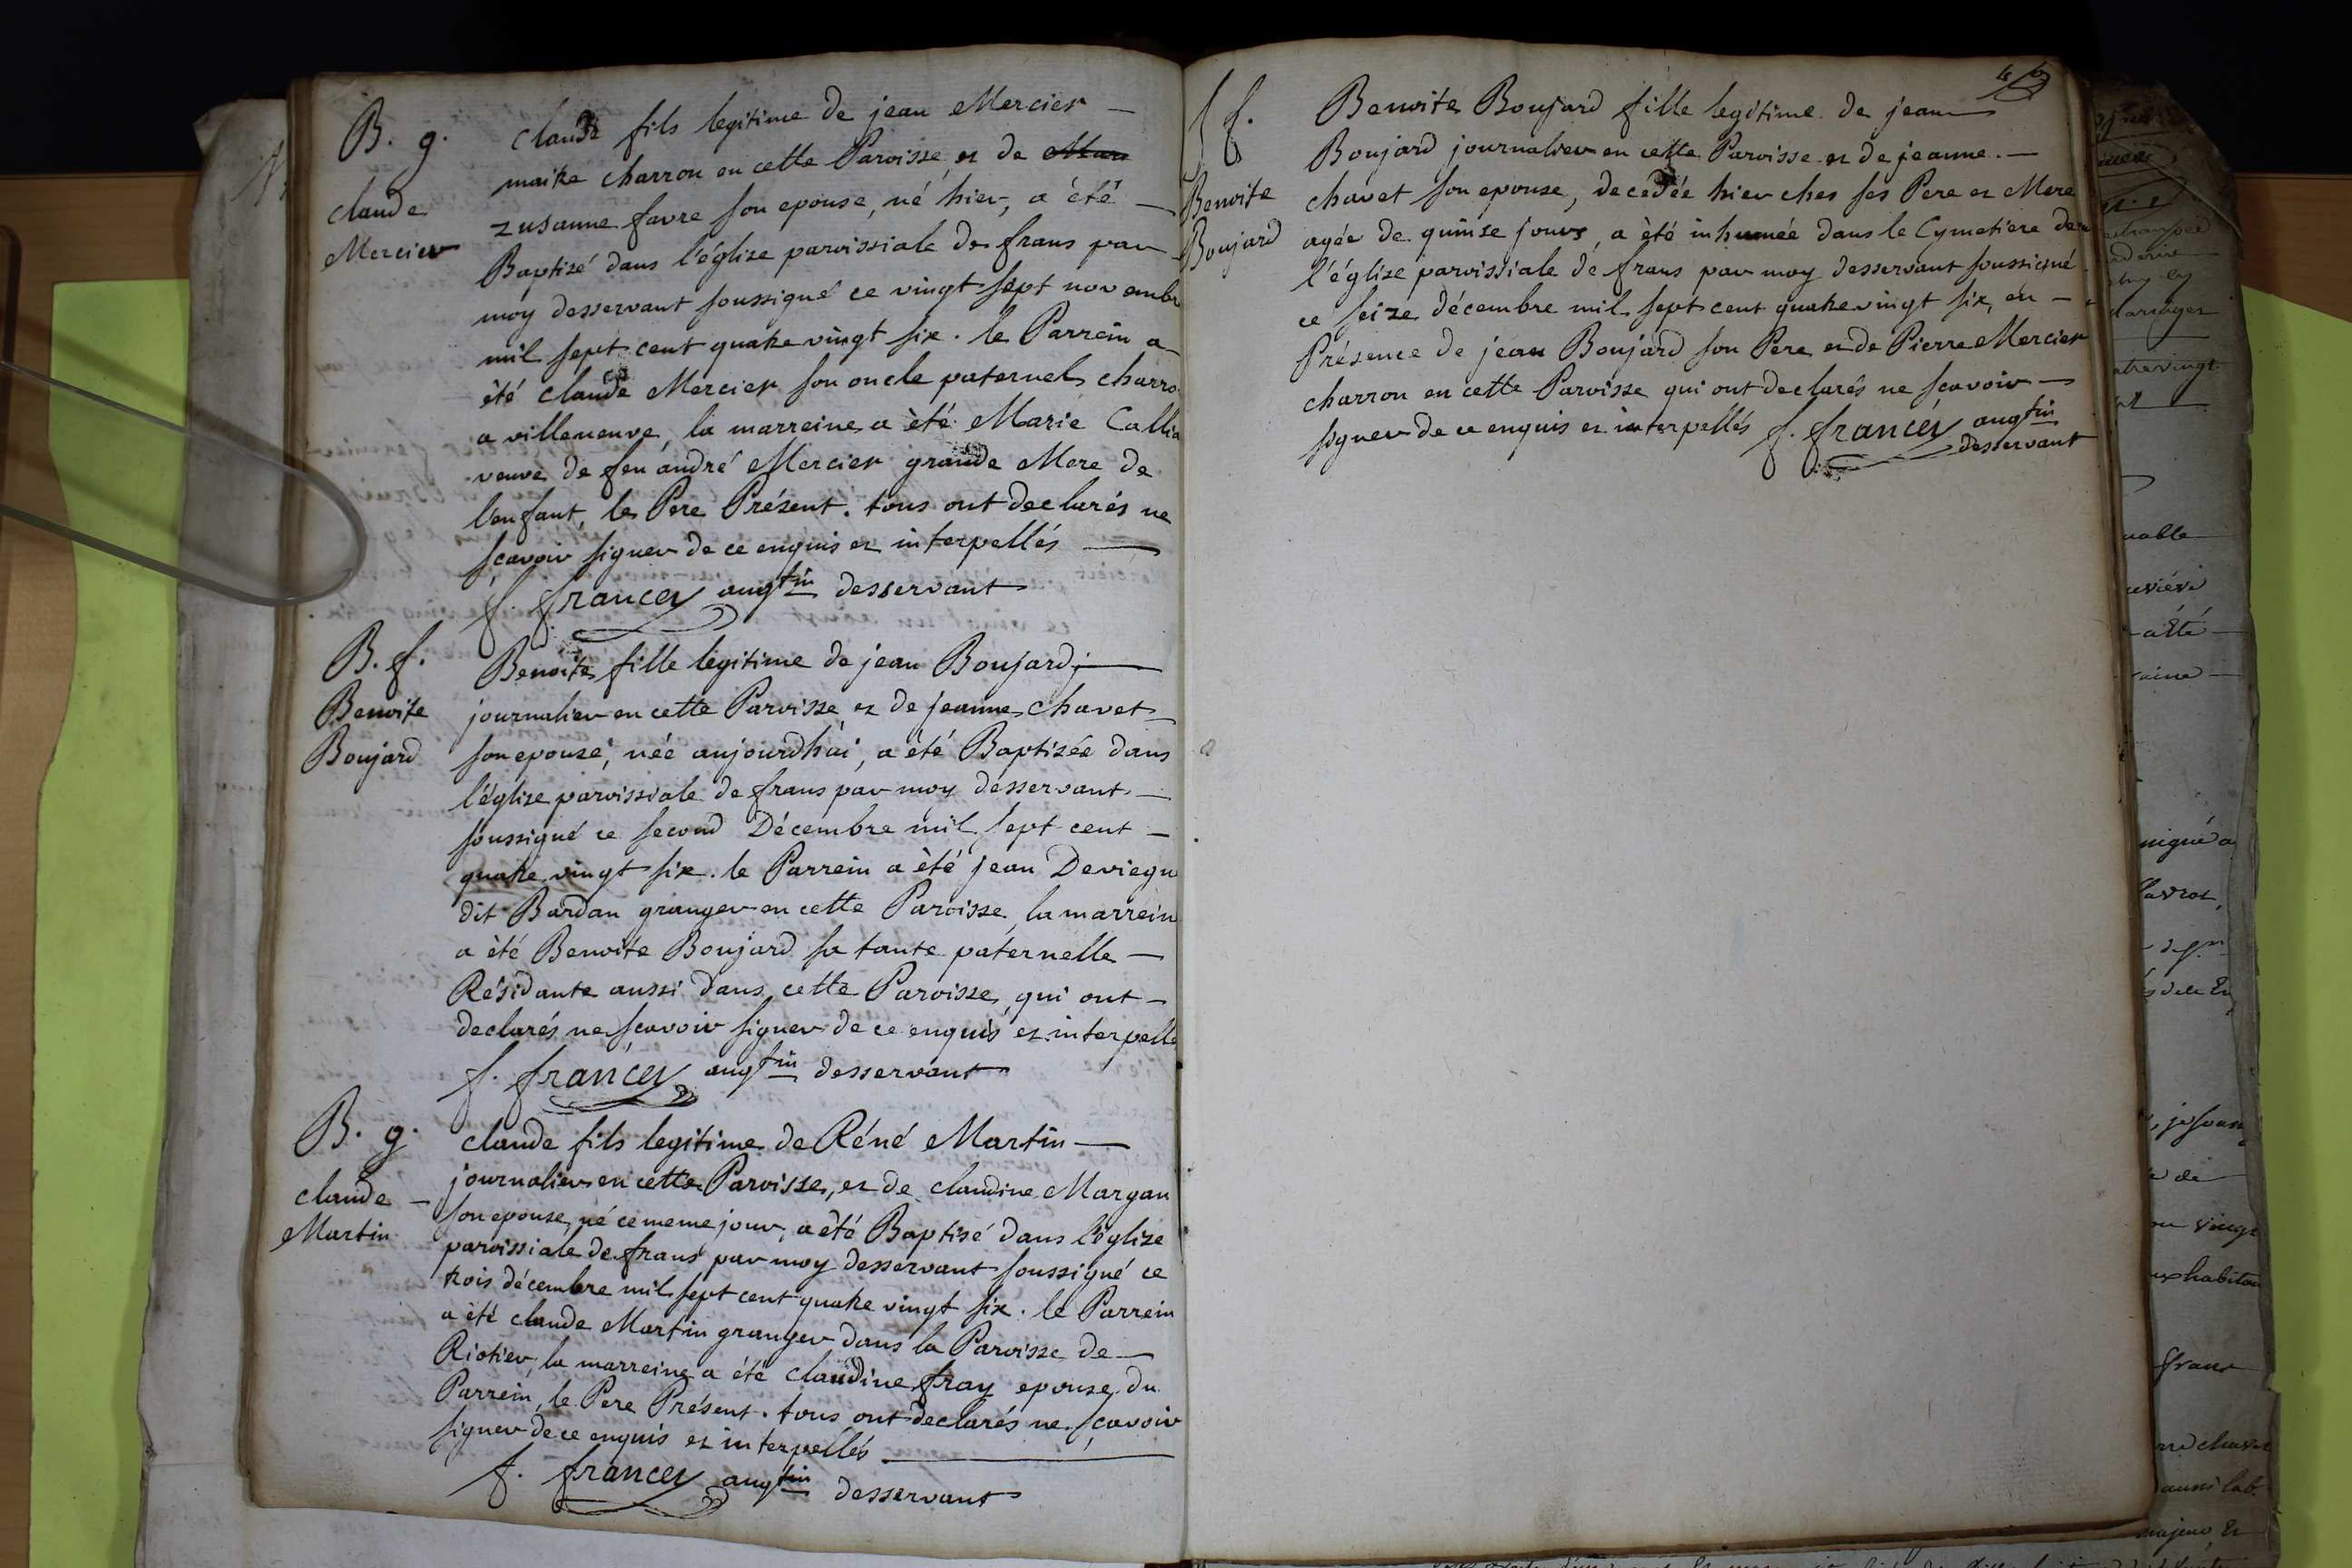 B. g.
claude
Mercier
claude fils legitime de jean Mercier —
maitre charron en cette Paroisse et de Mar
zusanne favre son epouse, né hier, a été —
Baptizé dans l'église paroissiale de frans par
moy desservant soussigné ce vingt sept novembre
mil sept cent quatre vingt six. le Parrein a
été claude Mercier son oncle paternel charro
a villeneuve, la marreine a été Marie Callia
veuve de feu andré Mercier grande Mere de
l'enfant, le Pere Présent. tous ont declarés ne
sçavoir signer de ce enquis et interpellés —
f. francey augtin desservant
B. f.
Benoite
Boujard
Benoite fille legitime de jean Boujard —
journalier en cette Paroisse et de jeanne chavet
son epouse, née aujourdhui, a été Baptizée dans
l'église paroissiale de frans par moy desservant —
soussigné ce second Décembre mil sept cent —
quatre vingt six. le Parrein a été jean Deviegu
dit Bardan granger en cette Paroisse, la marrein
a été Benoite Boujard sa tante paternelle —
Résidante aussi dans cette Paroisse, qui ont —
declarés ne sçavoir signer de ce enquis et interpellé
f. francey augtin desservant
B. g.
claude —
Martin
claude fils legitime de Réné Martin —
journalier en cette Paroisse, et de claudine Margan
son epouse, né ce meme jour, a été Baptisé dans l'église
paroissiale de frans par moy desservant soussigné ce
trois décembre mil sept cent quatre vingt six. le Parrein
a été claude Martin granger dans la Paroisse de —
Riotier, la marreine a été claudine fray epouse du
Parrein, le Pere Présent. tous ont declarés ne sçavoir
signer de ce enquis et interpellés —
f. francey augtin desservant
f.
Benoite
Boujard
Benoite Boujard fille legitime de jean
Boujard journalier en cette Paroisse et de jeanne —
chavet son epouse, decedée hier ches ses Pere et Mere
agée de quinse jours, a été inhumée dans le Cymetiere de
l'église paroissiale de frans par moy desservant soussigné
ce seize décembre mil sept cent quatre vingt six, en —
Présence de jean Boujard son Pere et de Pierre Mercier
charron en cette Paroisse qui ont declarés ne sçavoir —
signer de ce enquis et interpellés f. francey augtin
desservant